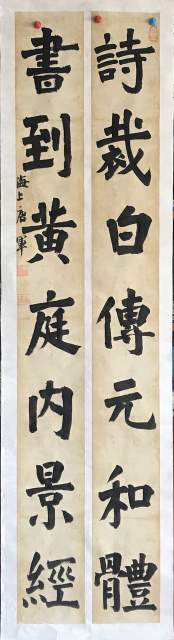 詩裁白傳元和體
書到黃庭內景經
海上唐軍